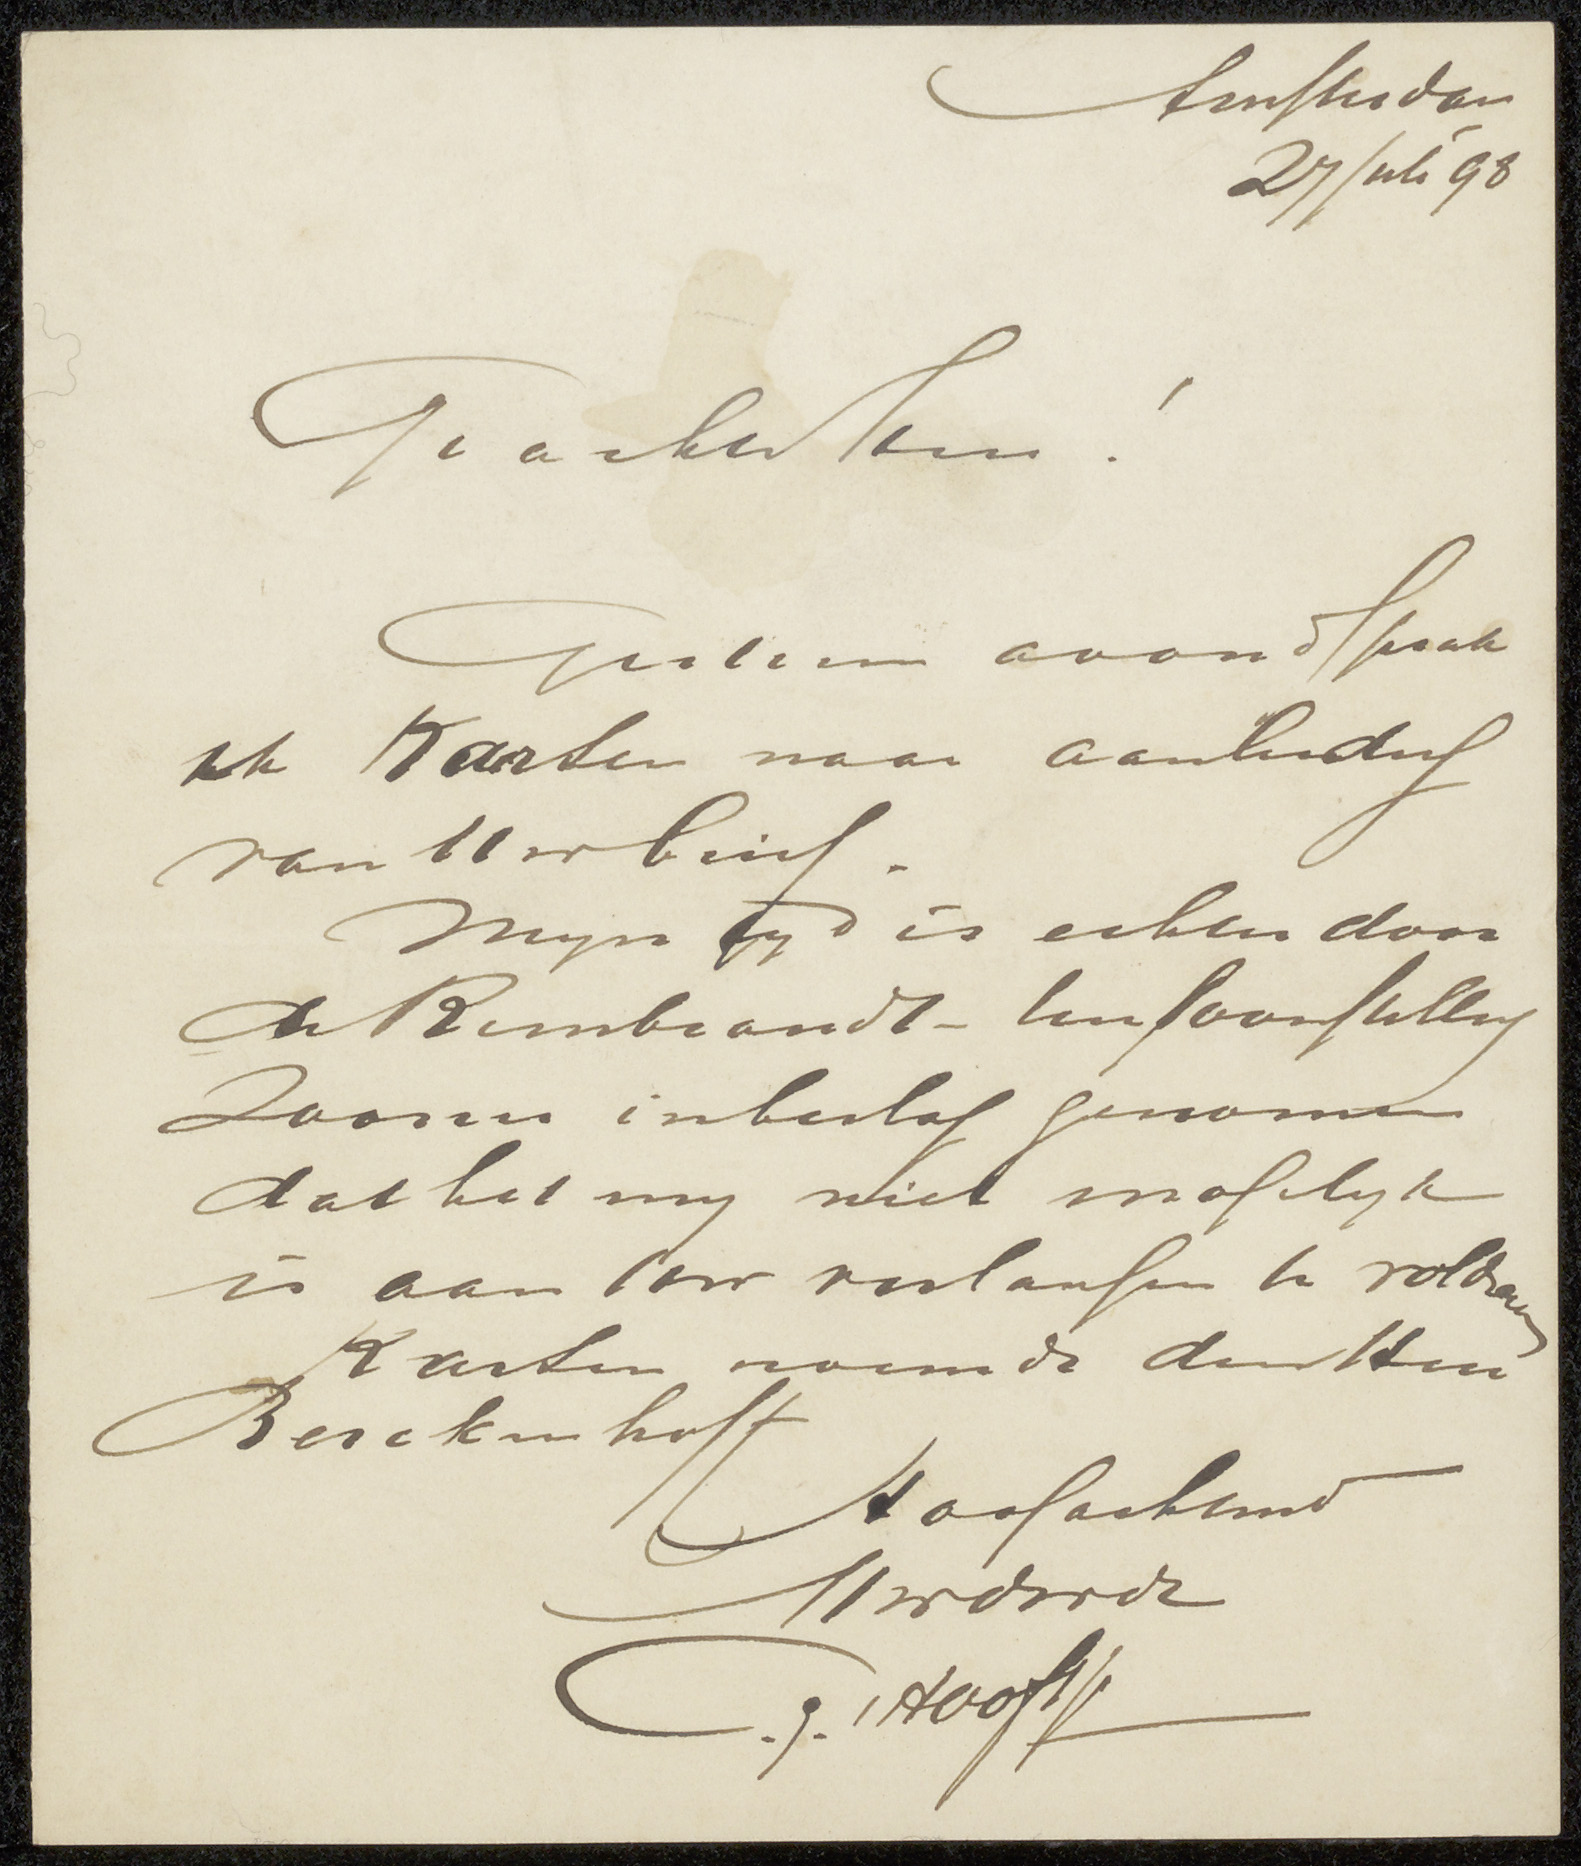 Amsterdam
27 Juli '98
Geachte Heer!
Gisteren avond sprak
ik Karsten naar aanleiding
van Uw brief.
Myn tyd is echter door
de Rembrandt-tentoonstelling
zoozeer in beslag genomen
dat het my niet mogelyk
is aan Uw verlangen te voldoen
Karsten noemde den Heer
Berckenhoff
Hoogachtend
Uwdwdr
C.G. 't Hooft